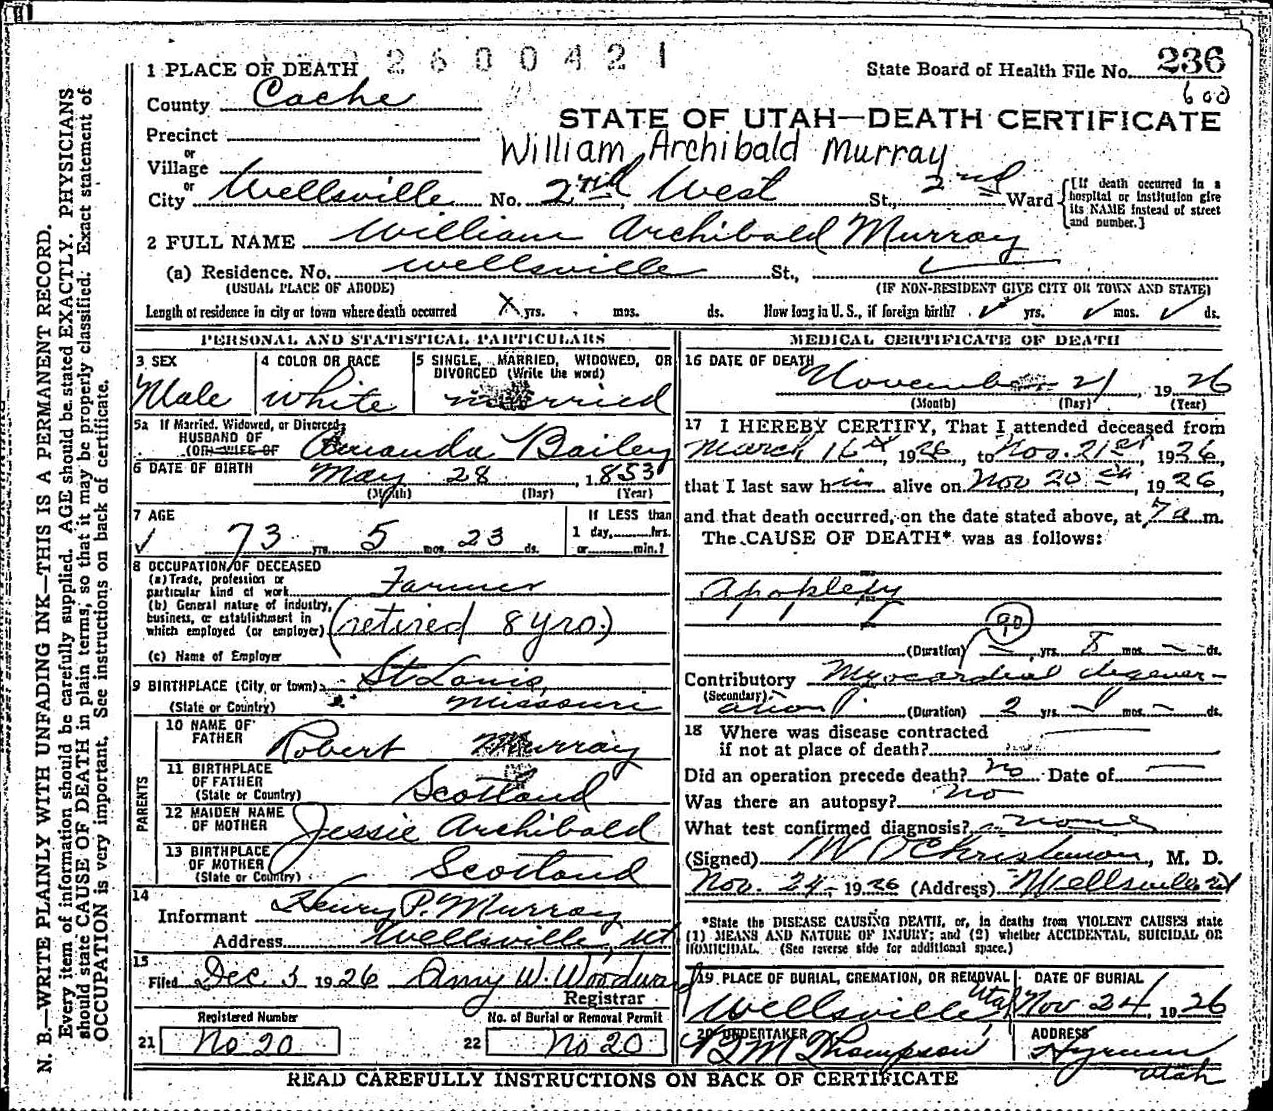 2600421
1 PLACE OF DEATH
State Board of Health File No. 236
County Cache
600
STATE OF UTAH—DEATH CERTIFICATE
Precinct
William Archibald Murray
or
Village
or
City Wellsville No. 2nd West St., 2nd Ward
[If death occurred in a hospital or institution give its NAME instead of street and number.]
2 FULL NAME William Archibald Murray
(a) Residence. No. Wellsville St.,
(USUAL PLACE OF ABODE) (IF NON-RESIDENT GIVE CITY OR TOWN AND STATE)
Length of residence in city or town where death occurred X yrs. mos. ds. How long in U. S., if foreign birth? ✓ yrs. ✓ mos. ✓ ds.
PERSONAL AND STATISTICAL PARTICULARS
3 SEX
Male
4 COLOR OR RACE
white
5 SINGLE, MARRIED, WIDOWED, OR
DIVORCED (Write the word)
married
5a If Married, Widowed, or Divorced
HUSBAND OF
(OR) WIFE OF Amanda Bailey
6 DATE OF BIRTH May 28, 1853
(Month) (Day) (Year)
7 AGE
✓ 73 yrs. 5 mos. 23 ds.
If LESS than
1 day, hrs.
or min.?
8 OCCUPATION OF DECEASED
(a) Trade, profession or
particular kind of work Farmer
(b) General nature of industry,
business, or establishment in
which employed (or employer) (retired 8 yrs.)
(c) Name of Employer
9 BIRTHPLACE (City or town) St Louis,
(State or Country) Missouri
PARENTS
10 NAME OF
FATHER Robert Murray
11 BIRTHPLACE
OF FATHER
(State or Country) Scotland
12 MAIDEN NAME
OF MOTHER Jessie Archibald
13 BIRTHPLACE
OF MOTHER
(State or Country) Scotland
14
Informant Henry P. Murray
Address Wellsville, Ut
15
Filed Dec 3 1926 Amy W. Woodward
Registrar
Registered Number
21 No 20
No. of Burial or Removal Permit
22 No 20
MEDICAL CERTIFICATE OF DEATH
16 DATE OF DEATH
November 21 1926
(Month) (Day) (Year)
17 I HEREBY CERTIFY, That I attended deceased from
March 16th, 1926, to Nov. 21st, 1926,
that I last saw him alive on Nov 20th, 1926,
and that death occurred, on the date stated above, at 7 a m.
The CAUSE OF DEATH* was as follows:
Apoplexy
90
(Duration) — yrs. 8 mos. — ds.
Contributory Myocardial degener-
(Secondary) ation (Duration) 2 yrs. — mos. — ds.
18 Where was disease contracted
if not at place of death?
Did an operation precede death? no Date of —
Was there an autopsy? no
What test confirmed diagnosis? none
(Signed) W D Christenson, M. D.
Nov. 24, 1926 (Address) Wellsville Ut
*State the DISEASE CAUSING DEATH, or, in deaths from VIOLENT CAUSES state
(1) MEANS AND NATURE OF INJURY; and (2) whether ACCIDENTAL, SUICIDAL OR
HOMICIDAL. (See reverse side for additional space.)
19 PLACE OF BURIAL, CREMATION, OR REMOVAL
Wellsville Utah
DATE OF BURIAL
Nov 24, 1926
20 UNDERTAKER
M Thompson
ADDRESS
Hyrum
Utah
READ CAREFULLY INSTRUCTIONS ON BACK OF CERTIFICATE
N. B.—WRITE PLAINLY WITH UNFADING INK—THIS IS A PERMANENT RECORD.
Every item of information should be carefully supplied. AGE should be stated EXACTLY. PHYSICIANS
should state CAUSE OF DEATH in plain terms, so that it may be properly classified. Exact statement of
OCCUPATION is very important. See instructions on back of certificate.